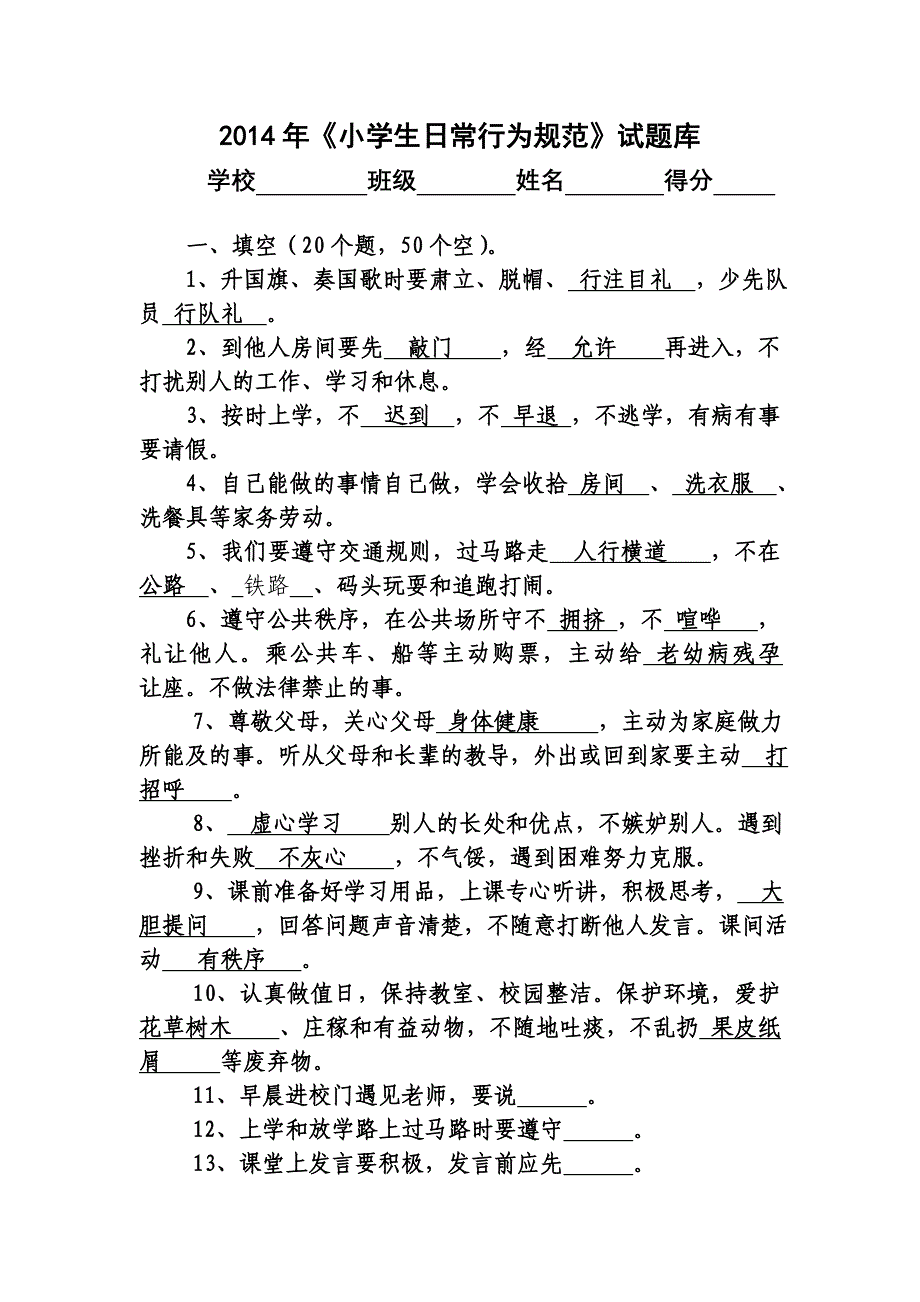 2014年《小学生日常行为规范》试题库
学校 班级 姓名 得分
一、填空（20个题，50个空）。
1、升国旗、奏国歌时要肃立、脱帽、 行注目礼 ，少先队
员 行队礼 。
2、到他人房间要先 敲门 ，经 允许 再进入，不
打扰别人的工作、学习和休息。
3、按时上学，不 迟到 ，不 早退 ，不逃学，有病有事
要请假。
4、自己能做的事情自己做，学会收拾 房间 、 洗衣服 、
洗餐具等家务劳动。
5、我们要遵守交通规则，过马路走 人行横道 ，不在
公路 、 铁路 、码头玩耍和追跑打闹。
6、遵守公共秩序，在公共场所守不 拥挤 ，不 喧哗 ，
礼让他人。乘公共车、船等主动购票，主动给 老幼病残孕
让座。不做法律禁止的事。
7、尊敬父母，关心父母 身体健康 ，主动为家庭做力
所能及的事。听从父母和长辈的教导，外出或回到家要主动 打
招呼 。
8、 虚心学习 别人的长处和优点，不嫉妒别人。遇到
挫折和失败 不灰心 ，不气馁，遇到困难努力克服。
9、课前准备好学习用品，上课专心听讲，积极思考， 大
胆提问 ，回答问题声音清楚，不随意打断他人发言。课间活
动 有秩序 。
10、认真做值日，保持教室、校园整洁。保护环境，爱护
花草树木 、庄稼和有益动物，不随地吐痰，不乱扔 果皮纸
屑 等废弃物。
11、早晨进校门遇见老师，要说 。
12、上学和放学路上过马路时要遵守 。
13、课堂上发言要积极，发言前应先 。